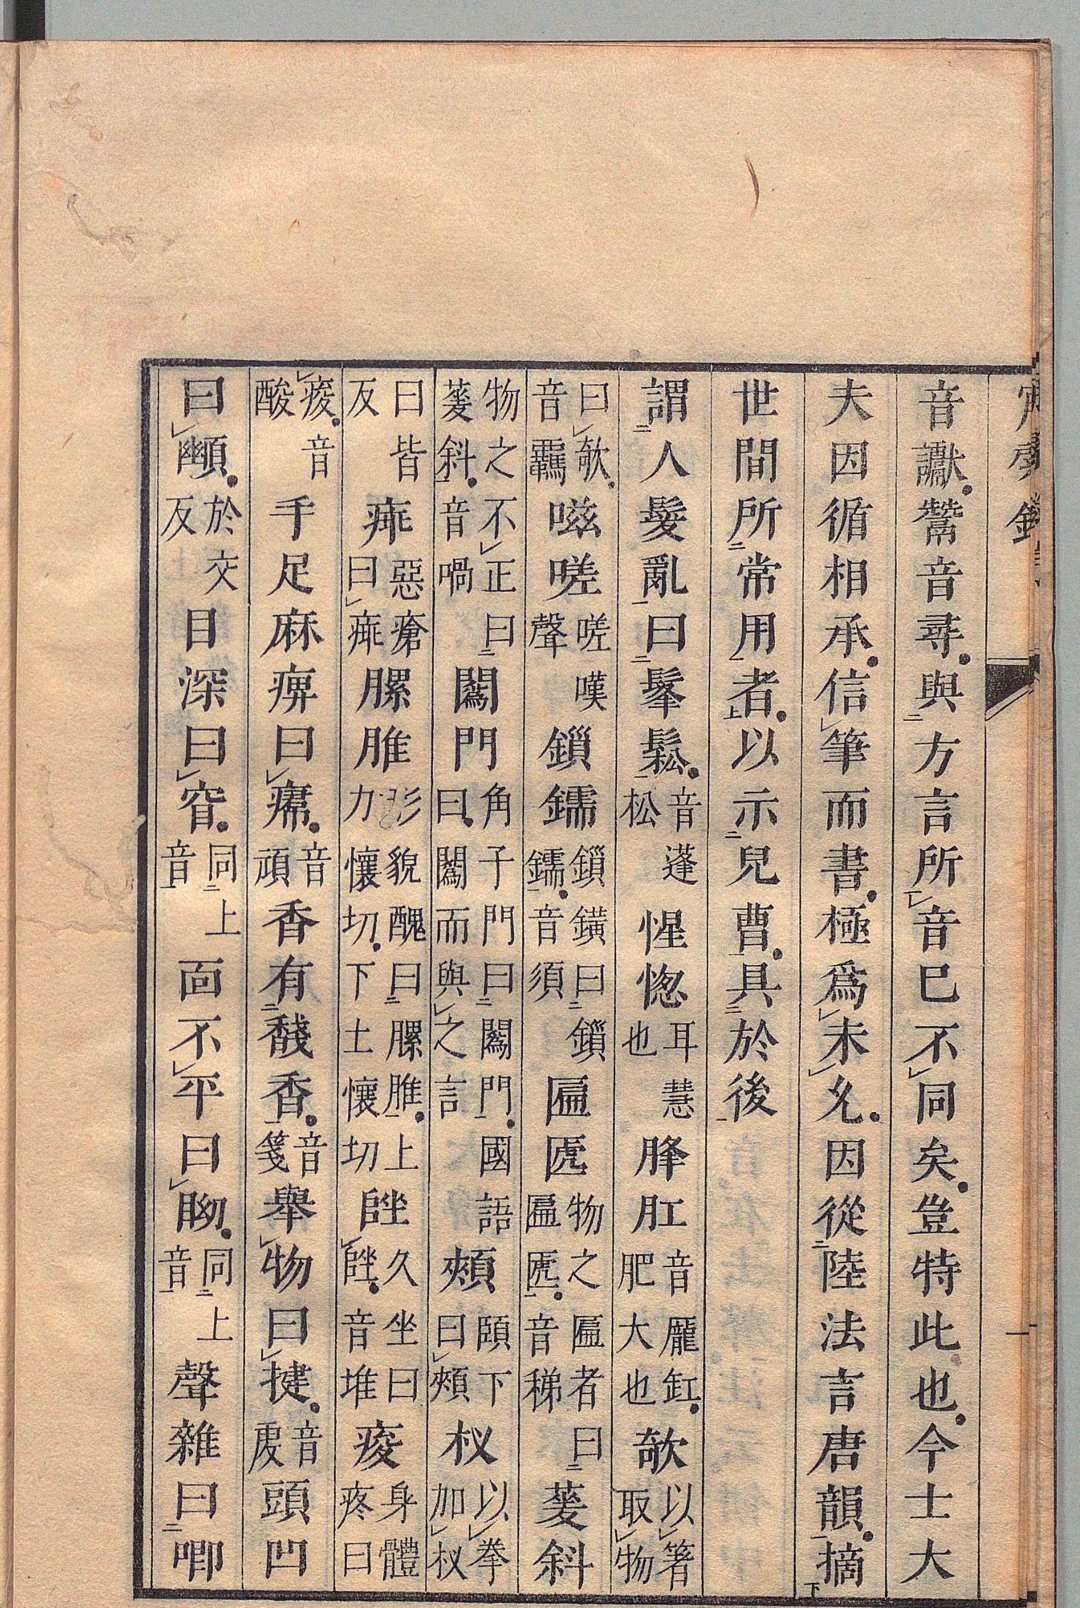 音讞鬵音尋與方言所音已不同矣豈特此也今士大
夫因循相承信筆而書極爲未允因從陸法言唐韻摘
世間所常用者以示兒曹具於後
謂人髮亂曰鬔鬆音蓬松惺惚耳慧也胮肛音龐缸肥大也欹以箸取物
曰欹音羈嗞嗟嗟嘆聲鎻鑐鎻鐄曰鎻鑐音須匾㔸物之匾者曰匾㔸音梯菱斜
物之不正曰菱斜音喎䦱門角子門曰䦱門國語曰䦱而與之言頰頤下曰頰杈以拳加杈
曰皆反惡瘡曰腂脽形貌醜曰腂脽上力懷切下士懷切久坐曰音堆痠身體疼曰
痠音酸手足麻痹曰音頑香有馢香音箋舉物曰揵音虔頭凹
曰於交反目深曰窅音同上面不平曰音同上聲雜曰唧